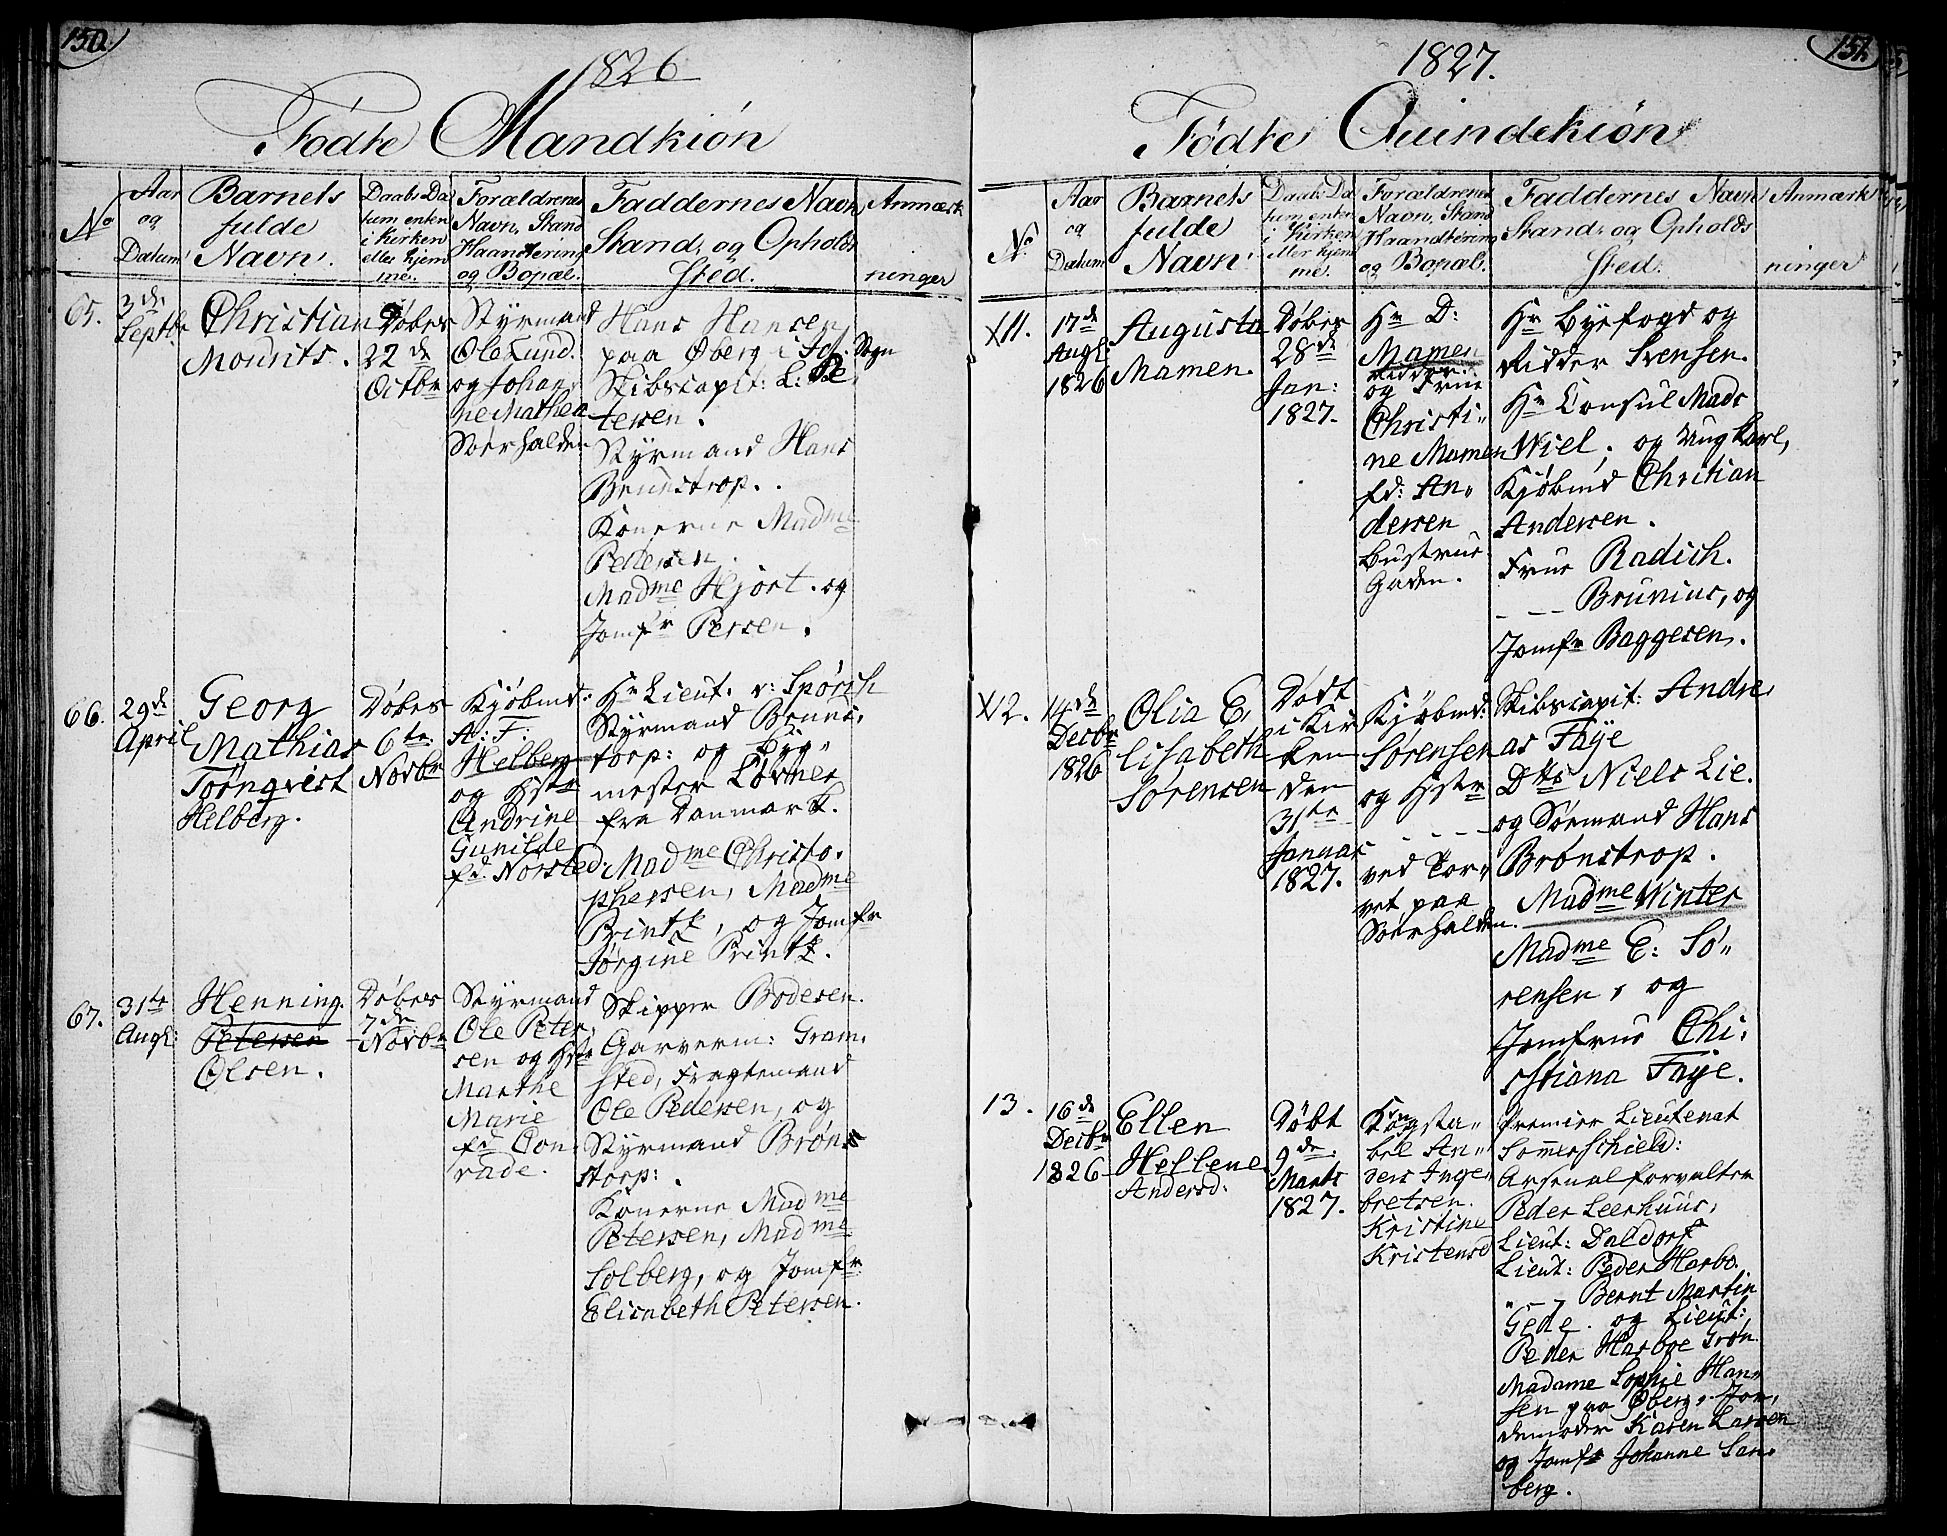 150.
1826
Födte Mandkiön
No
Aar
og
Datum
Barnets
fulde
Navn.
Daabs Da
tum enten
i Kirken
eller hjem
me.
Forældrenes
Navn, Stand
Haandtering
og Bopæl.
Faddernes Navn
Stand, og Opholds
Sted.
Anmærk
ninger
65.
3de
Septbr
Christian
Mourits.
Döbes
22de
Octbr
Styrmand
Ole Lund.
og Johan,
ne Mathea
Soerhalden
Hans Hansen
paa Öberg i Id. Sogn
Skibscapit: L: Pe,
tersen.
Styrmand Hans
Brunstrop.
Konerne Madme
Petersen.
Madme Hjort. og
Jomfr Persen.
66.
29de
April
Georg
Mathias
Törnqvist
Helberg.
Döbes
6te
Novbr
Kjöbmd:
A: F:
Helberg
og Hstr
Andrine
Gunilde
fd. Norsted.
Hr Lieut. v: Spörch
Styrmand Bruns,
torp: og Byg,,
mester Lövmer
fra Danmark.
Madme Christo,
phersen, Madme
Printz, og Jomfr
Jörgine Printz.
67.
31te
Augt:
Henning.
Petersen
Olsen.
Döbes
7de
Novbr
Styrmand
Ole Peter,
sen og Hstr
Marthe
Marie
fd Con,
rade.
Skipper Bodesen.
Garverm: Gram,
sted, Fragtemand
Ole Pedersen, og
Styrmand Bröns
storp:.
Konerne Madme
Petersen, Madme
Solberg, og Jomfr
Elisabeth Petersen.
151.
1827.
Födte Quindekiön
No
Aar
og
Datum
Barnets
fulde
Navn.
Daabs Da
tum enten
i Kirken
eller hjem
me.
Forældrenes
Navn, Stand
Haandtering
og Bopæl.
Faddernes Navn
Stand, og Opholds
Sted.
Anmærk
ninger
X11.
17de
Augt:
1826
Augusta
Mamen.
Döbes
28de
Jan:
1827.
Hr D:
Mamen
Ridder
og Frue
Christi,,
ne Mamen
fd: An,,
dersen
Bustrue
Gaden.
Hr Byefogd og
Ridder Svensen.
Hr Consul Mads
Wiel. og Ungkarl,
Kjöbmd Christian
Andersen.
Frue Radich.
— — Brunius, og
Jomfr Baggesen.
X12.
14de
Decbr
1826
Olia E,
lisabeth
Sörensen
Dödt
i Kir
ken
den
31te
Januar
1827.
Kjöbmd:
Sörensen
og Hstr
- - - -
ved Tor,,
vet paa
Soerhalden.
Skibscapit: Andre,
as Faÿe
Dtto Niels Lie.
og Sörmand Hans
Brönstrop.
Madme Winter
Madme E: Sö,,
rensen, og
Jomfrue Chi,
stiana Faÿe.
13.
16de
Decbr
1826
Ellen
Hellene
Andersd:
Döbt
9de
Marts
1827.
Kogsta,,
bel An,,
ders Inge,
bretsen.
Kristine
Kristensd
Premier Lieutenat
Sommerschield:
Arsenalforvalter
Peder Leerhuus,
Lieut: Daldorf
Lieut: Peder Harbo.
„ — „ Bernt Martin
Gede. og Lieut:
Peder Harboe Grön
Madame Sophie Han,
sen paa Öberg, Jor,
demoder Karen Larsen
og Jomfr Johanne San,
berg.